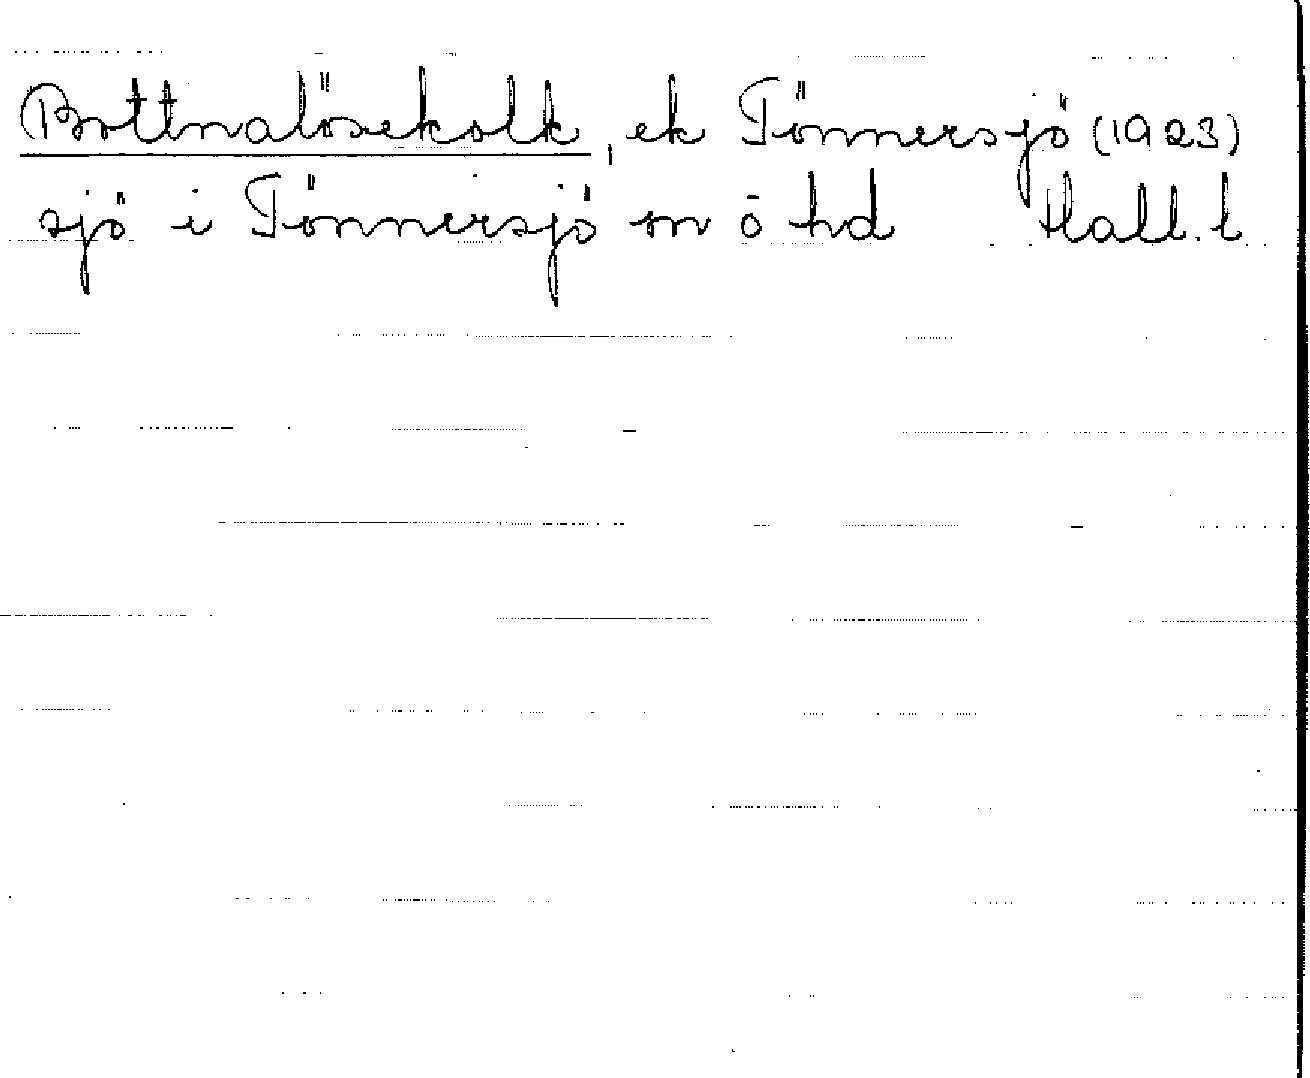 Bottnalösekolk, ek Tönnersjö (1923)
sjö i Tönnersjö sn ö hd Hall. l